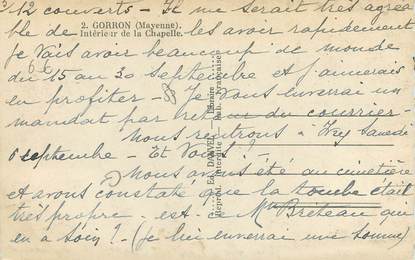 12 couverts - Il me serait très agréa
2. GORRON (Mayenne).
ble de les avoir rapidement
Intérieur de la Chapelle.
Je vais avoir beaucoup de monde
du 15 au 30 septembre et j'aimerais
en profiter - Je vous enverrai un
mandat par retour du courrier -
Nous rentrons à samedi
6 septembre - Et Vous?
Nous avons été au cimetière
et avons constaté que la tombe était
très propre. est-ce Mme Breteau qui
en a soin? - (Je lui enverrai une somme)
Reprod. interdite